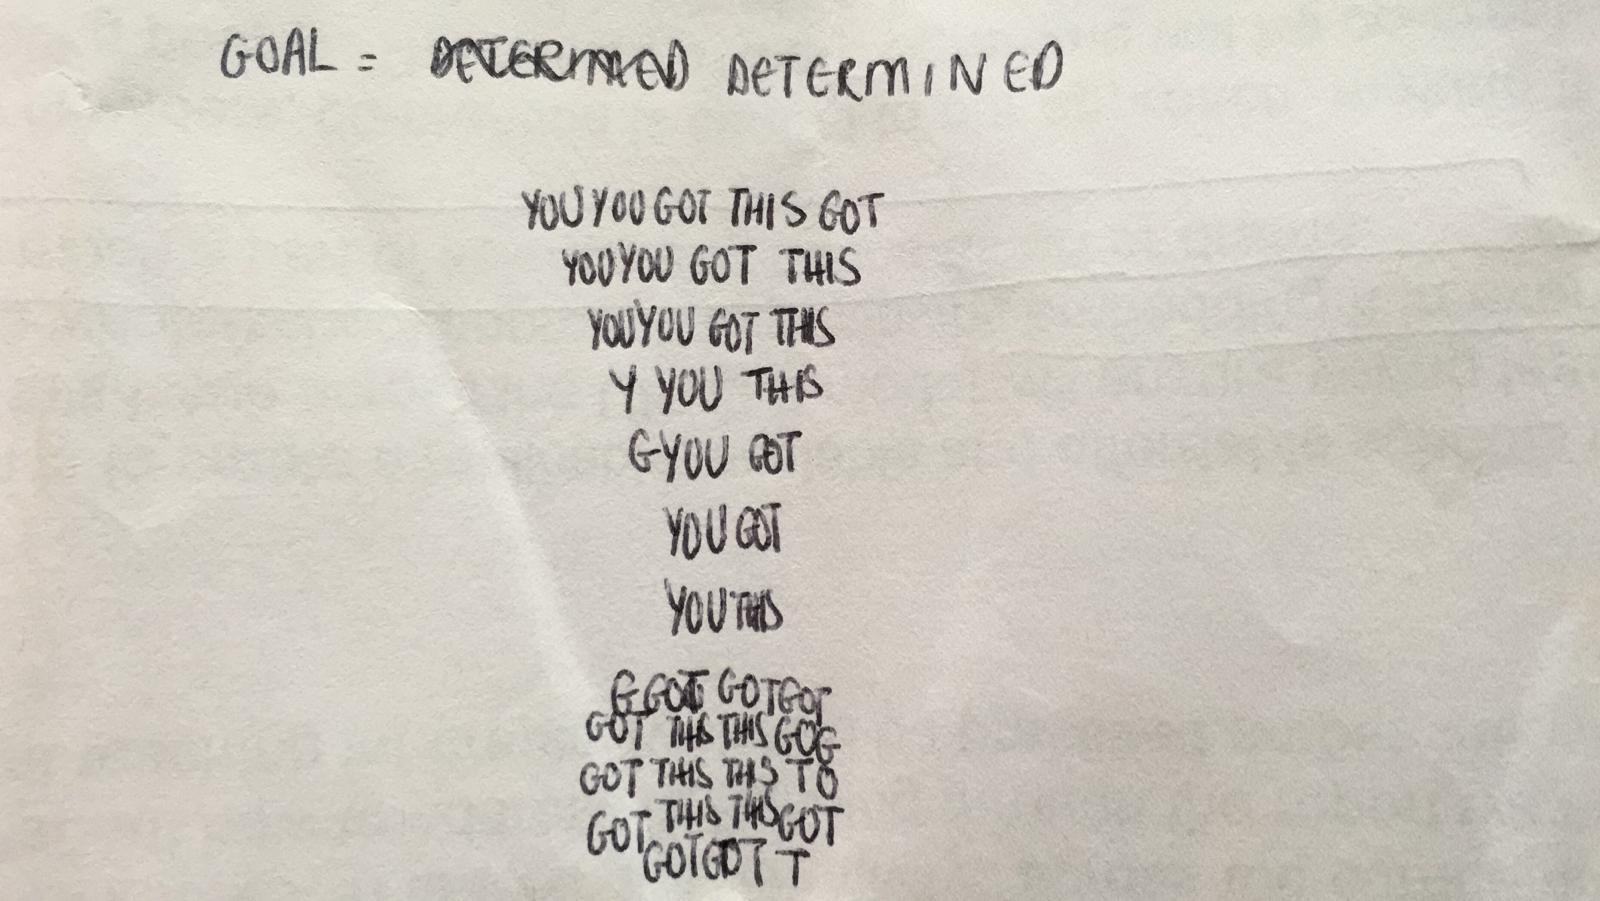 GOAL = DETERMINED
YOUYOU GOT THIS GOT
YOUYOU GOT THIS
YOUYOU GOT THIS
Y YOU THIS
GYOU GOT
YOU GOT
YOUTHIS
G GOT GOTGOT
GOT THIS THIS GOG
GOT THIS THIS TO
GOT THIS THIS GOT
GOTGOT T